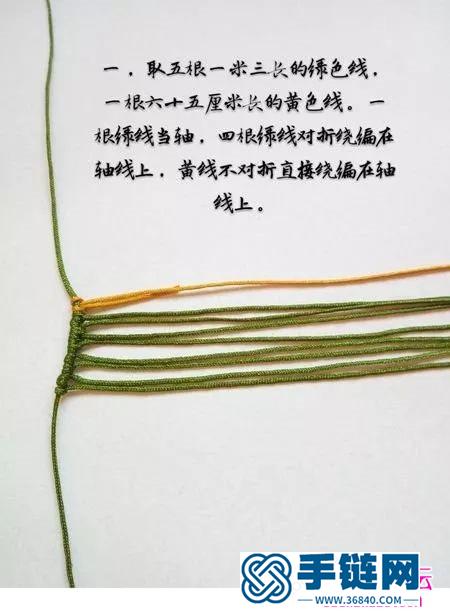 一，取五根一米三长的绿色线，
一根六十五厘米长的黄色线。一
根绿线当轴，四根绿线对折绕编在
轴线上，黄线不对折直接绕编在轴
线上。
手链网
www.36840.com